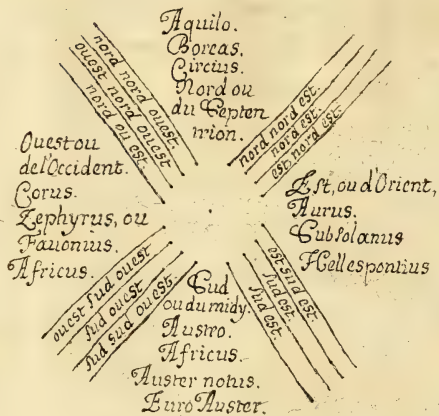 Aquilo.
Boreas.
Circius.
Nord ou
du Septen
trion.
nord nord ouest.
ouest nord ouest
nord ou est.
nord nord est.
nord est.
est, nord est.
Ouest ou
de l'Occident.
Corus.
Zephyrus, ou
Fauonius.
Africus.
Est, ou d'Orient,
Aurus.
Subsolanus
Hellespontius
ouest sud ouest
sud ouest
sud sud ouest.
est sud est.
sud est.
sud est.
Sud
ou du midy.
Austro.
Africus.
Auster notus.
Euro Auster.